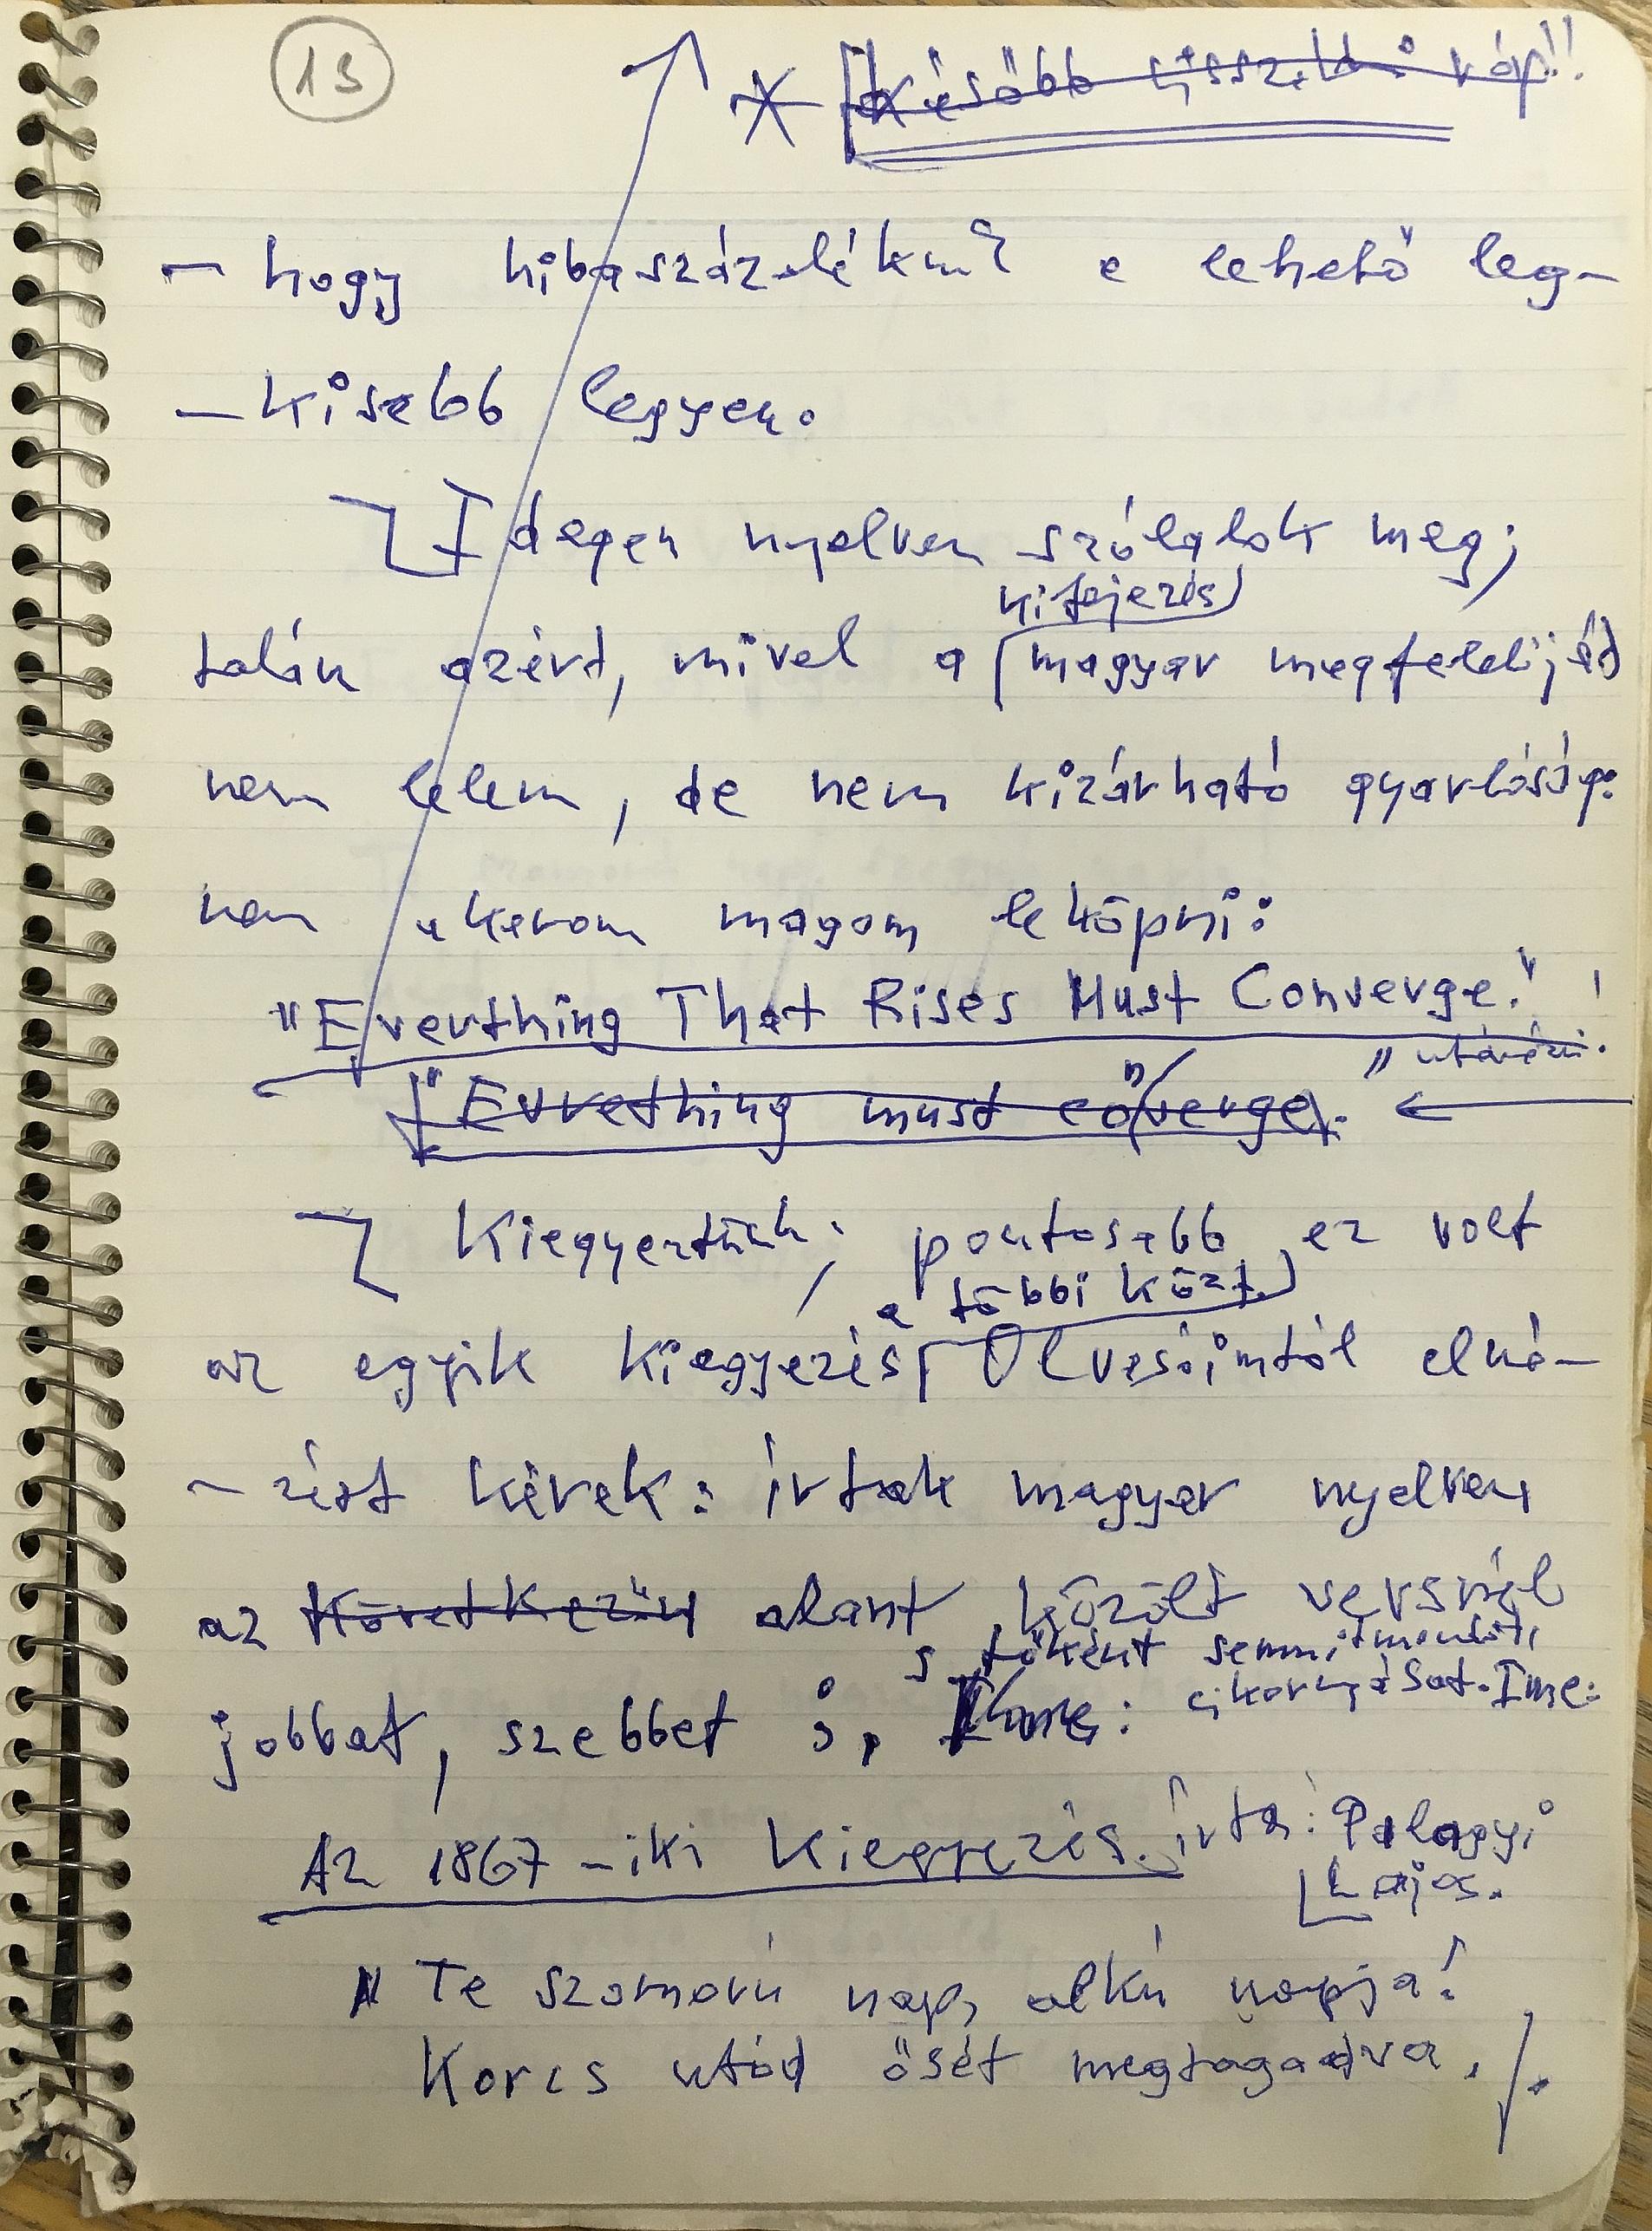 13
* Később
– hogy hibaszázalékun? a lehető leg-
– kisebb legyen.
Idegen nyelven szólalok meg;
kifejezés
talán azért, mivel a magyar megfelelőjét
nem lelem, de nem kizárható gyarlóság:
nem akarom magam leköpni:
"Everthing That Rises Must Converge." !
" utánézni.
"Evrething must converge".
Kiegyeztünk; pontosabb ez volt
a többi közt.
az egyik kiegyezés Olvasóimtól elné-
– zést kérek: írtak magyar nyelven
az következőn alant közölt versnél
s főként
jobbat, szebbet is, Íme: cikornyásat. Íme:
Az 1867-iki Kiegyezés. írta: Palagyi
Lajos.
" Te szomorú nap, alkú napja!
Korcs utód ősét megtagadva. /.